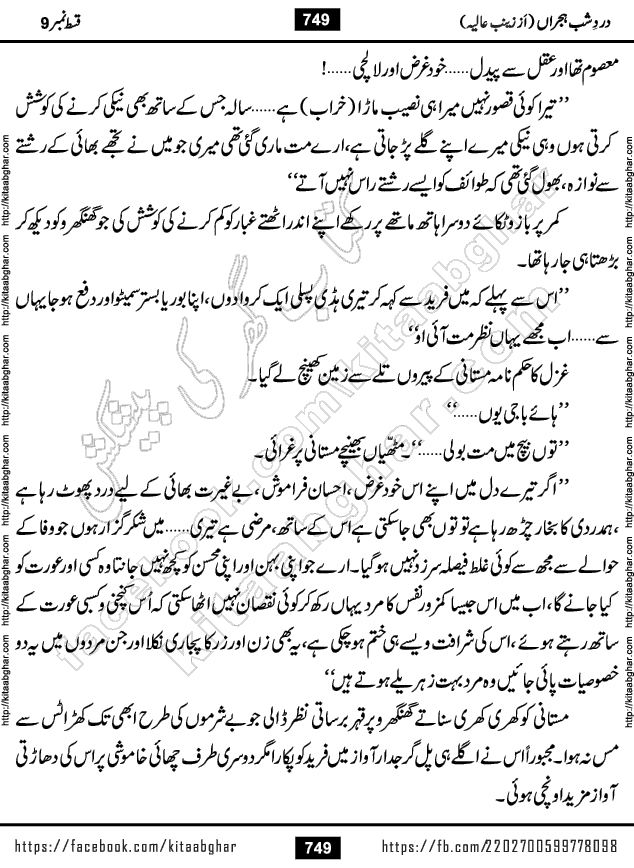 دردِ شب ہجراں (از زینب عالیہ)
749
قسط نمبر 9
معصوم تھا اور عقل سے پیدل......خود غرض اور لالچی......!
’’تیرا کوئی قصور نہیں میرا ہی نصیب ماڑا (خراب) ہے......سالہ جس کے ساتھ بھی نیکی کرنے کی کوشش
کرتی ہوں وہی نیکی میرے اپنے گلے پڑ جاتی ہے، ارے مت ماری گئی تھی میری جو میں نے تجھے بھائی کے رشتے
سے نوازہ، بھول گئی تھی کہ طوائف کو ایسے رشتے راس نہیں آتے‘‘
کمر پر بازو ٹکائے دوسرا ہاتھ ماتھے پر رکھے اپنے اندر اٹھتے غبار کو کم کرنے کی کوشش کی جو گھنگھرو کو دیکھ کر
بڑھتا ہی جا رہا تھا۔
’’اس سے پہلے کہ میں فرید سے کہہ کر تیری ہڈی پسلی ایک کروا دوں، اپنا بوریا بستر سمیٹو اور دفع ہو جا یہاں
سے......اب مجھے یہاں نظر مت آئی او‘‘
غزل کا حکم نامہ مستانی کے پیروں تلے سے زمین کھینچ لے گیا۔
’’ہائے باجی یوں......‘‘
’’توں بیچ میں مت بولی......‘‘۔ مٹھیاں بھینچے مستانی پر غرائی۔
’’اگر تیرے دل میں اپنے اس خود غرض، احسان فراموش، بے غیرت بھائی کے لیے درد پھوٹ رہا ہے
،ہمدردی کا بخار چڑھ رہا ہے تو توں بھی جا سکتی ہے اس کے ساتھ، مرضی ہے تیری......میں شکر گزار ہوں جو وفا کے
حوالے سے مجھ سے کوئی غلط فیصلہ سرزد نہیں ہو گیا۔ ارے جو اپنی بہن اور اپنی محسن کو کچھ نہیں جانتا وہ کسی اور عورت کو
کیا جانے گا، اب میں اس جیسا کمزور نفس کا مرد یہاں رکھ کر کوئی نقصان نہیں اٹھا سکتی کہ اُس کنچنی و کسبی عورت کے
ساتھ رہتے ہوئے، اس کی شرافت ویسے ہی ختم ہو چکی ہے، یہ بھی زن اور زر کا پجاری نکلا اور جن مردوں میں یہ دو
خصوصیات پائی جائیں وہ مرد بہت زہریلے ہوتے ہیں‘‘
مستانی کو کھری کھری سناتے گھنگھرو پر قہر برساتی نظر ڈالی جو بے شرموں کی طرح ابھی تک کھڑا ٹس سے
مس نہ ہوا۔ مجبوراً اس نے اگلے ہی پل گرجدار آواز میں فرید کو پکارا مگر دوسری طرف چھائی خاموشی پر اس کی دھاڑتی
آواز مزید اونچی ہوئی۔
http://kitaabghar.com http://kitaabghar.com http://kitaabghar.com http://kitaabghar.com http://kitaabghar.com http://kitaabghar.com
http://kitaabghar.com http://kitaabghar.com http://kitaabghar.com http://kitaabghar.com http://kitaabghar.com http://kitaabghar.com
کتاب گھر کی پیشکش
kitaabghar.com
facebook.com/kitaabghar
https://facebook.com/kitaabghar
749
https://fb.com/2202700599778098